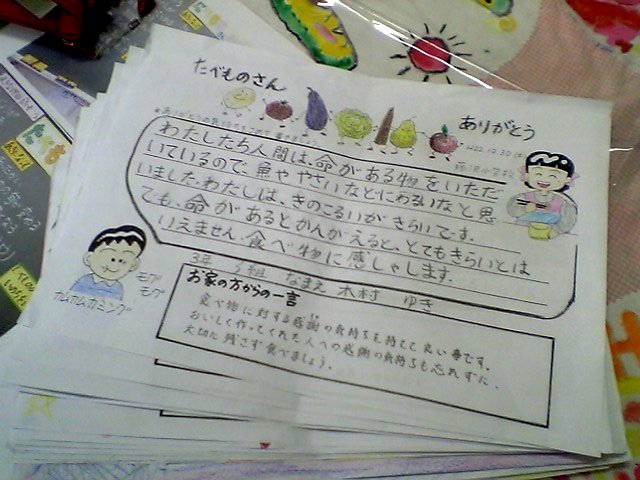 たべものさん
ありがとう
H22.10.30
わたしたち人間は、命がある物をいただ
いているので、魚ややさいなどにわるいなと思
いました。わたしは、きのこるいがきらいです。
でも、命があるとかんがえると、とてもきらいとは
いえません。食べ物に感しゃします。
3年 組 なまえ 木村 ゆき
モグ
モグ
カムカムカミング
お家の方からの一言
食べ物に対する感謝の気持ちを持てて良い事です。
おいしく作ってくれた人への感謝の気持ちも忘れずに、
大切に残さず食べましょう。